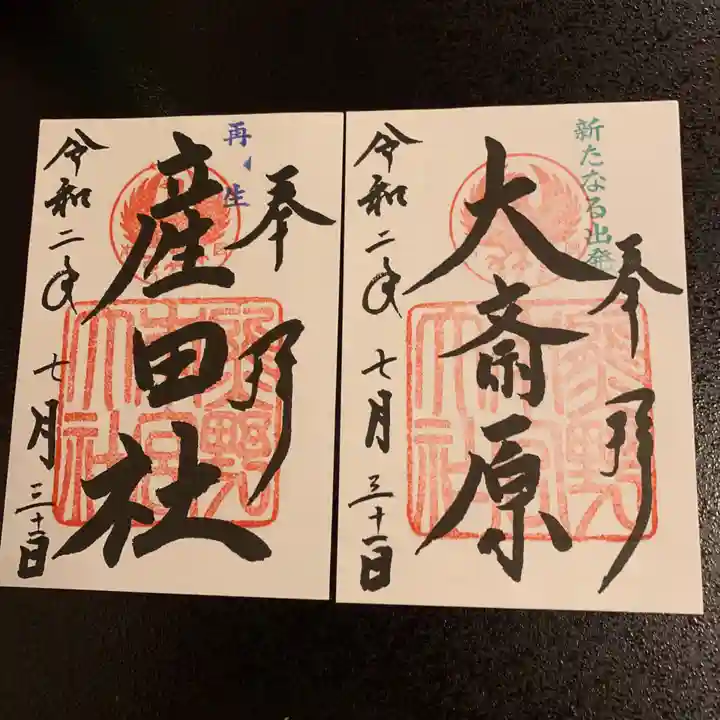 再生
奉拝
産田社
令和二年
七月三十一日
新たなる出発
奉拝
大斎原
令和二年
七月三十一日